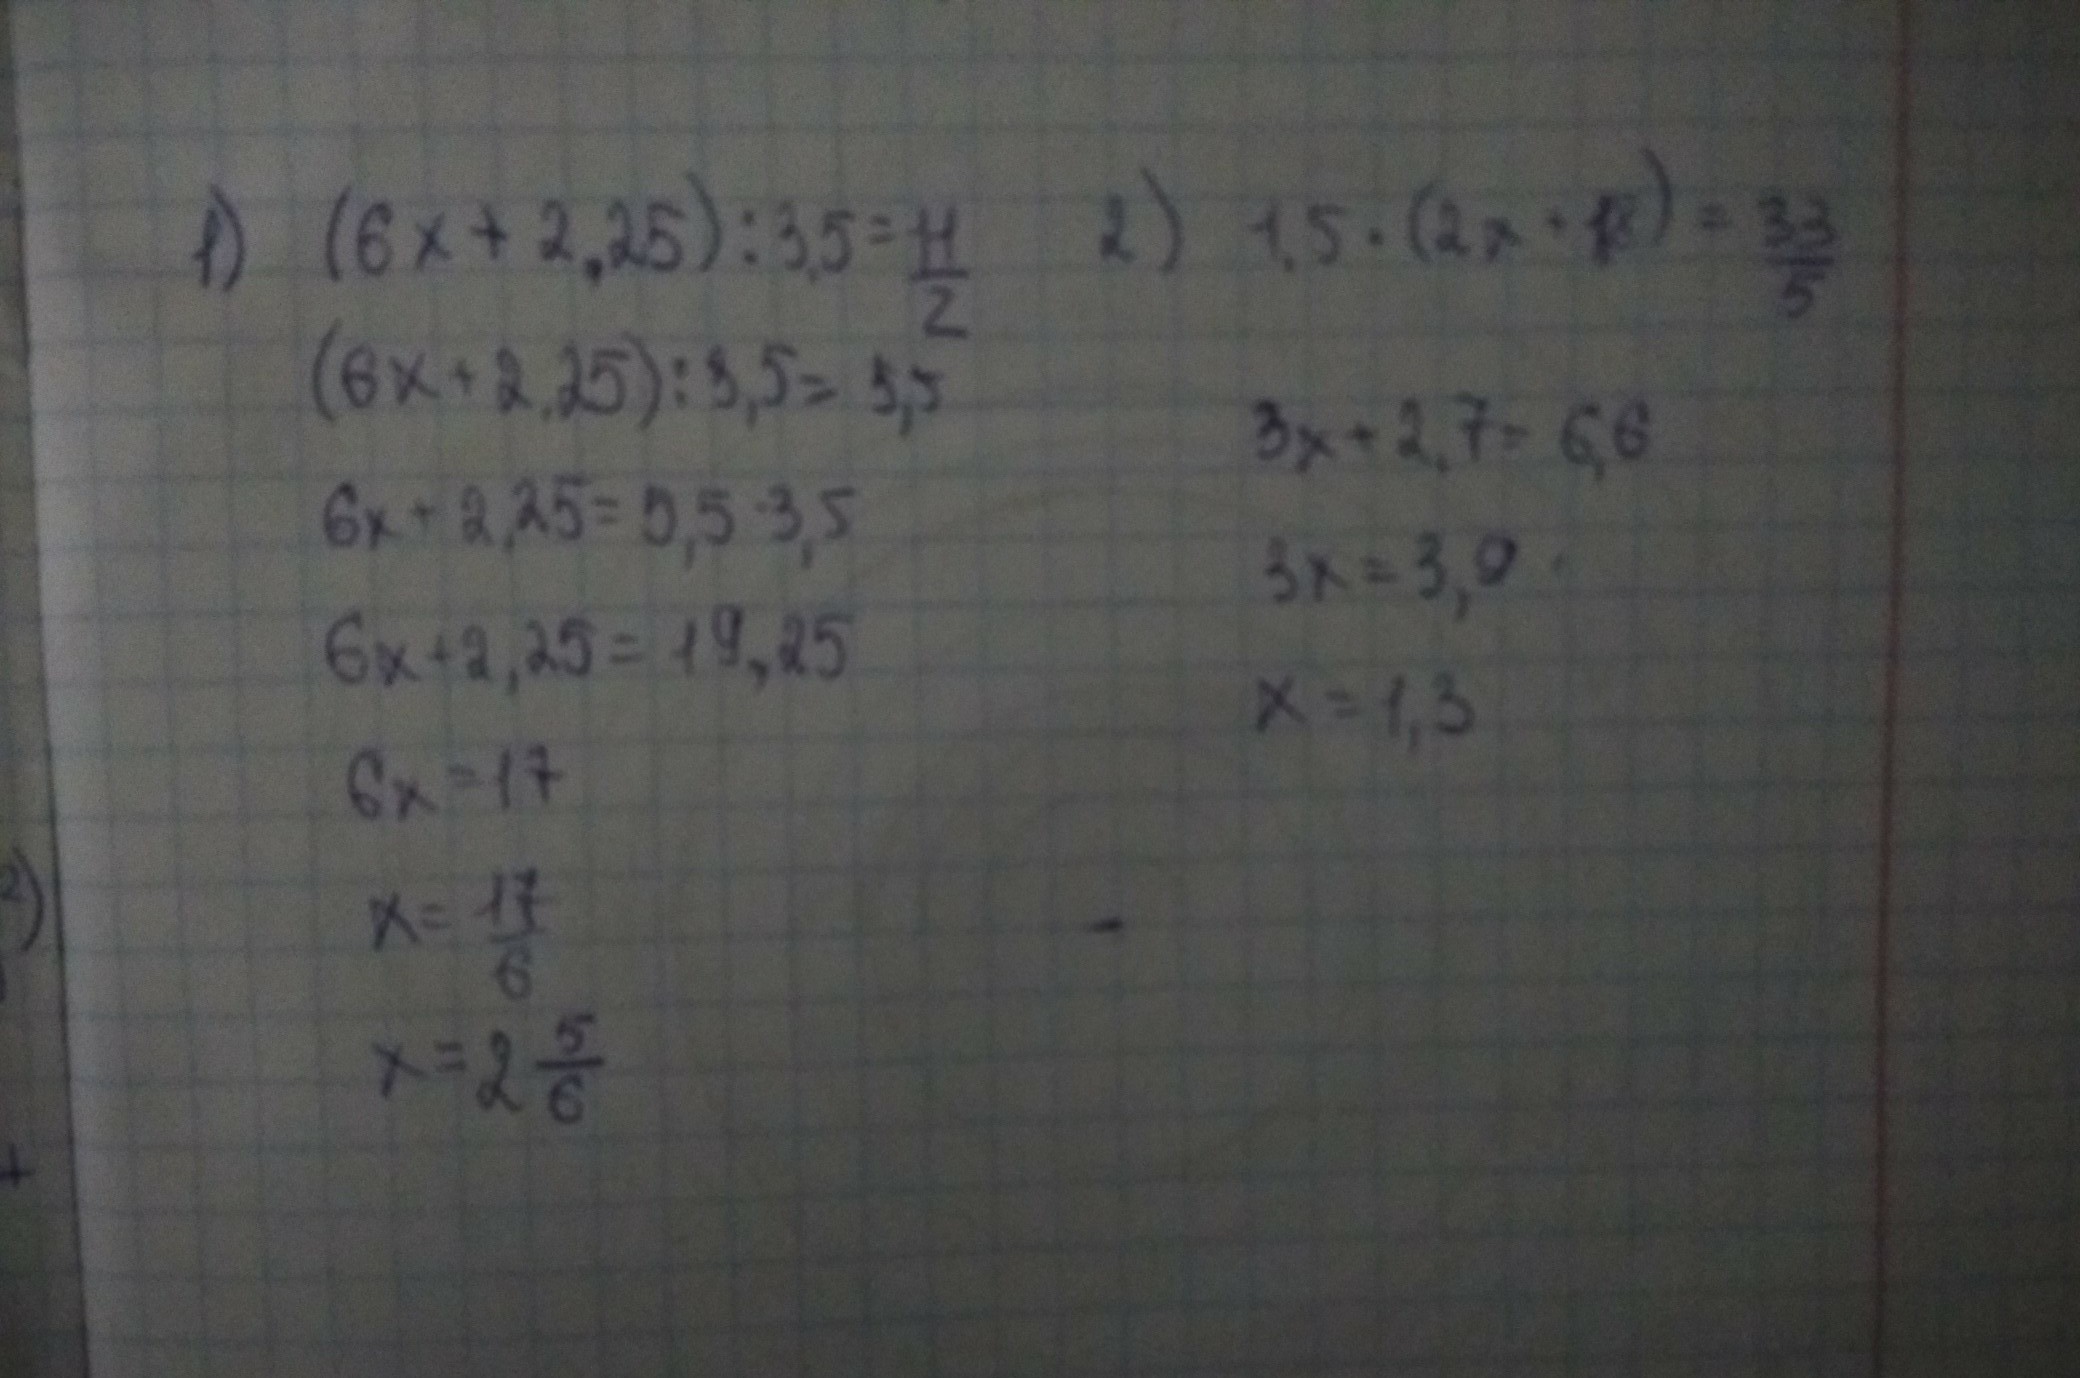 1) (6x + 2,25) : 3,5 = 11/2
(6x + 2,25) : 3,5 = 5,5
6x + 2,25 = 5,5 · 3,5
6x + 2,25 = 19,25
6x = 17
x = 17/6
x = 2 5/6
2) 1,5 · (2x + ) = 33/5
3x + 2,7 = 6,6
3x = 3,9
x = 1,3
2)
+